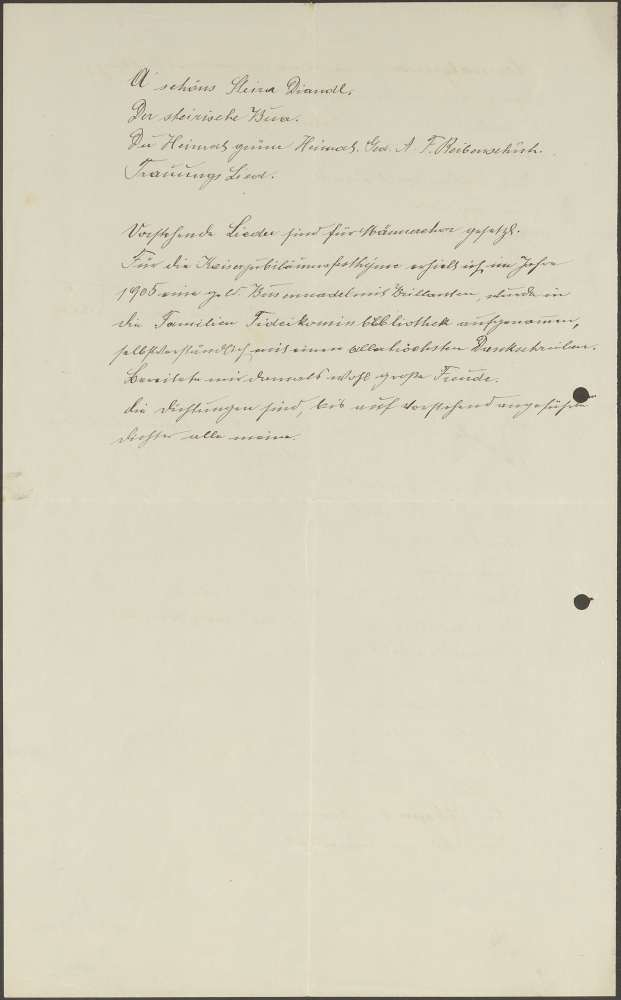 A' schöns Steira Diandl.
Der steirische Bua.
Du Heimat grüne Heimat. Ged. A. F.
Trauungs Lied.
Vorstehende Lieder sind für Männerchor gesetzt.
Für die Kaiserjubiläumsfesthymne erhielt ich im Jahre
1905 eine gold. Busennadel mit Brillanten, wurde in
die Familien Fideikomissbibliothek aufgenommen,
selbstverständlich mit einem allerhöchsten Dankschreiben.
Bereitete mir damals wohl große Freude.
Die Dichtungen sind, bis auf vorstehend angeführte
Dichter alle meine.